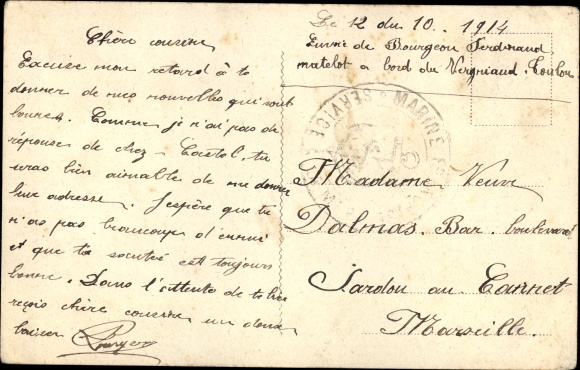 Le 12 du 10. 1914
Envoie de Bourgeon Ferdinand
matelot a bord du Vergniaud. Toulon
Chère cousine
Excuse mon retard à te
donner de mes nouvelles qui sont
bonnes. Comme je n'ai pas de
réponse de chez tu
serais bien aimable de me donner
leur adresse. J'espère que tu
n'as pas beaucoup d'ennui
et que ta santée est toujours
bonne. Dans l'attente de te lire
reçois chère cousine un doux
baiser
MARINE
SERVICE
Madame Veuve
Dalmas. Bar. boulevard
Jardou au Cannet
Marseille.